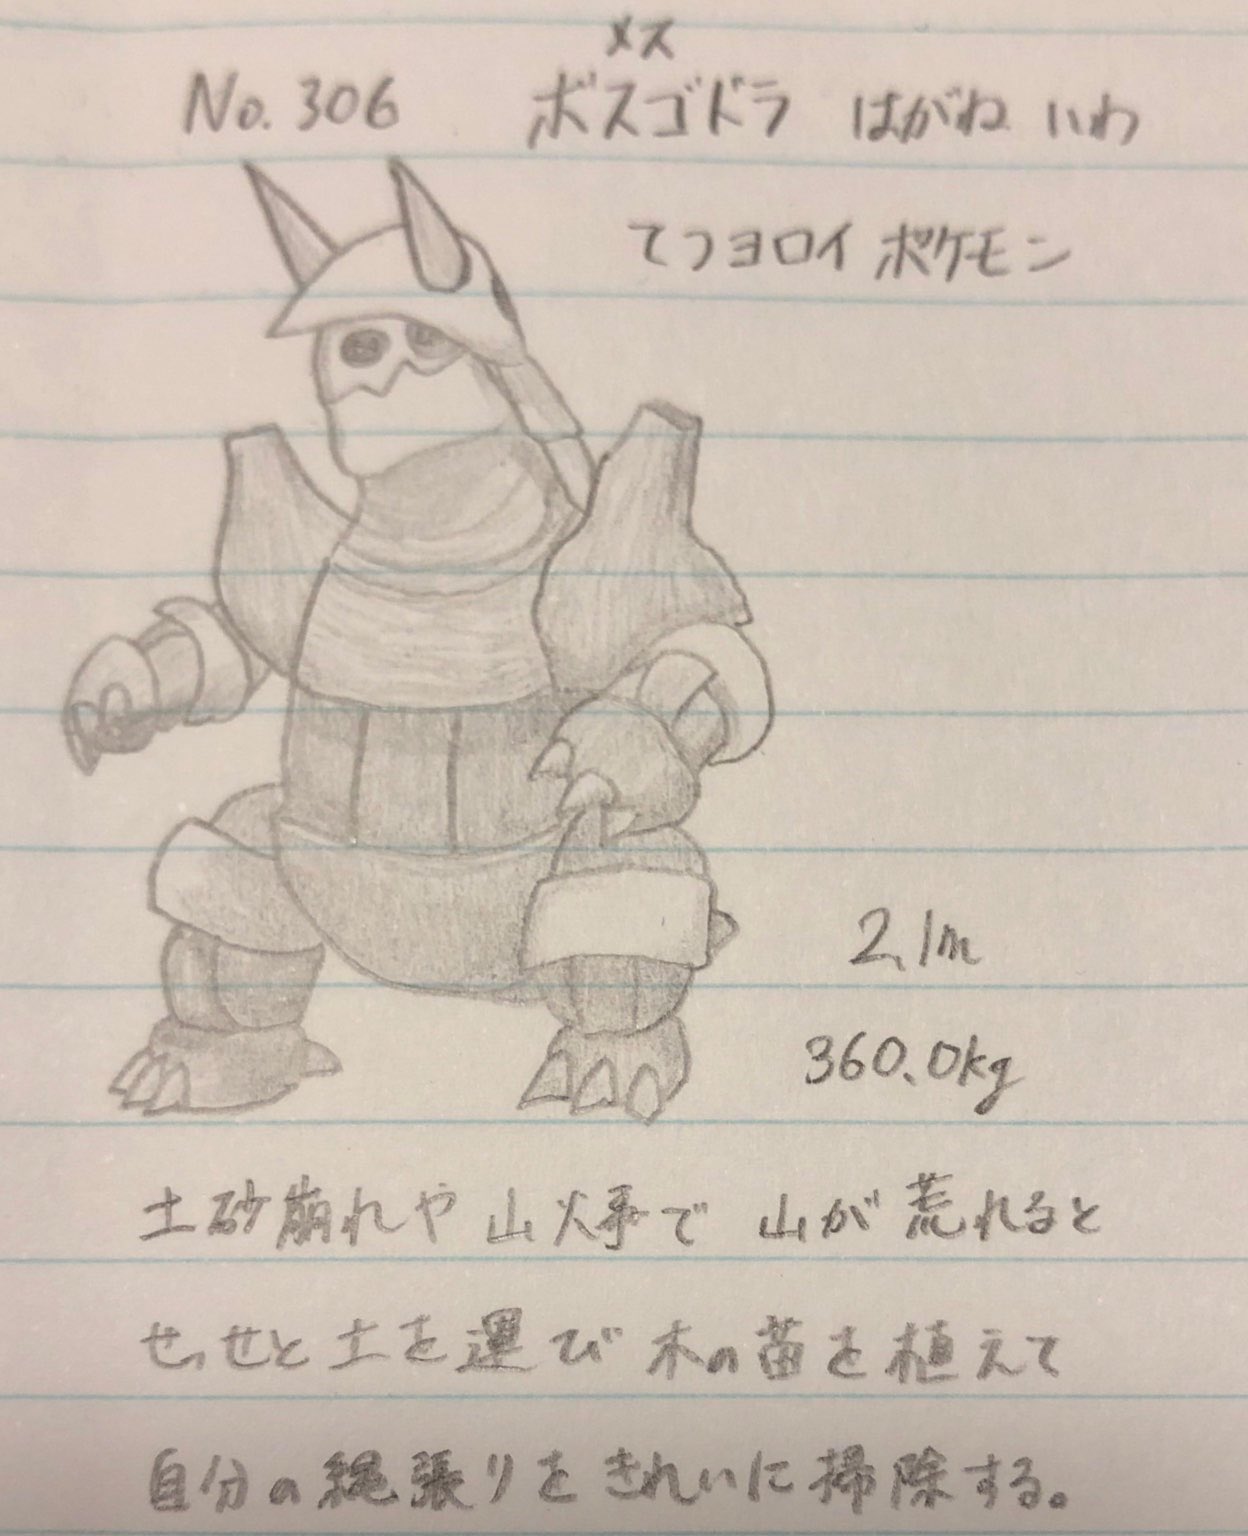 メス
No.306 ボスゴドラ はがね いわ
てつヨロイ ポケモン
2.1m
360.0kg
土砂崩れや山火事で 山が荒れると
せっせと土を運び 木の苗を植えて
自分の縄張りをきれいに掃除する。